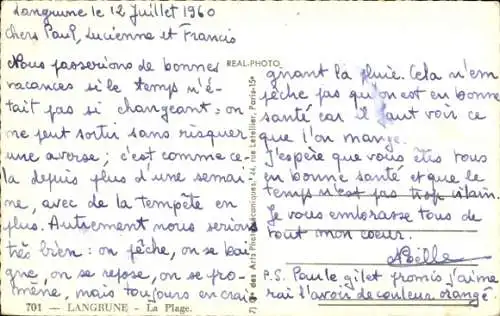 Langrune le 12 Juillet 1960
Chers Paul, Lucienne et Francis
Nous passerions de bonnes
vacances si le temps n'é-
tait pas si changeant : on
ne peut sortir sans risquer
une averse ; c'est comme ce-
la depuis plus d'une semai
ne, avec de la tempête en
plus. Autrement nous serions
très bien : on pêche, on se bai
gne, on se repose, on se pro-
mène, mais toujours en crai
701 - LANGRUNE - La Plage.
REAL-PHOTO
des Arts 44, rue Letellier, Paris-15e
gnant la pluie. Cela n'em
pêche pas qu'on est en bonne
santé car il faut voir ce
que l'on mange.
J'espère que vous êtes tous
en bonne santé et que le
temps n'est pas trop vilain.
Je vous embrasse tous de
tout mon coeur.
Noëlle
P.S. Paul le gilet promis j'aime
rai l'avoir de couleur orangé